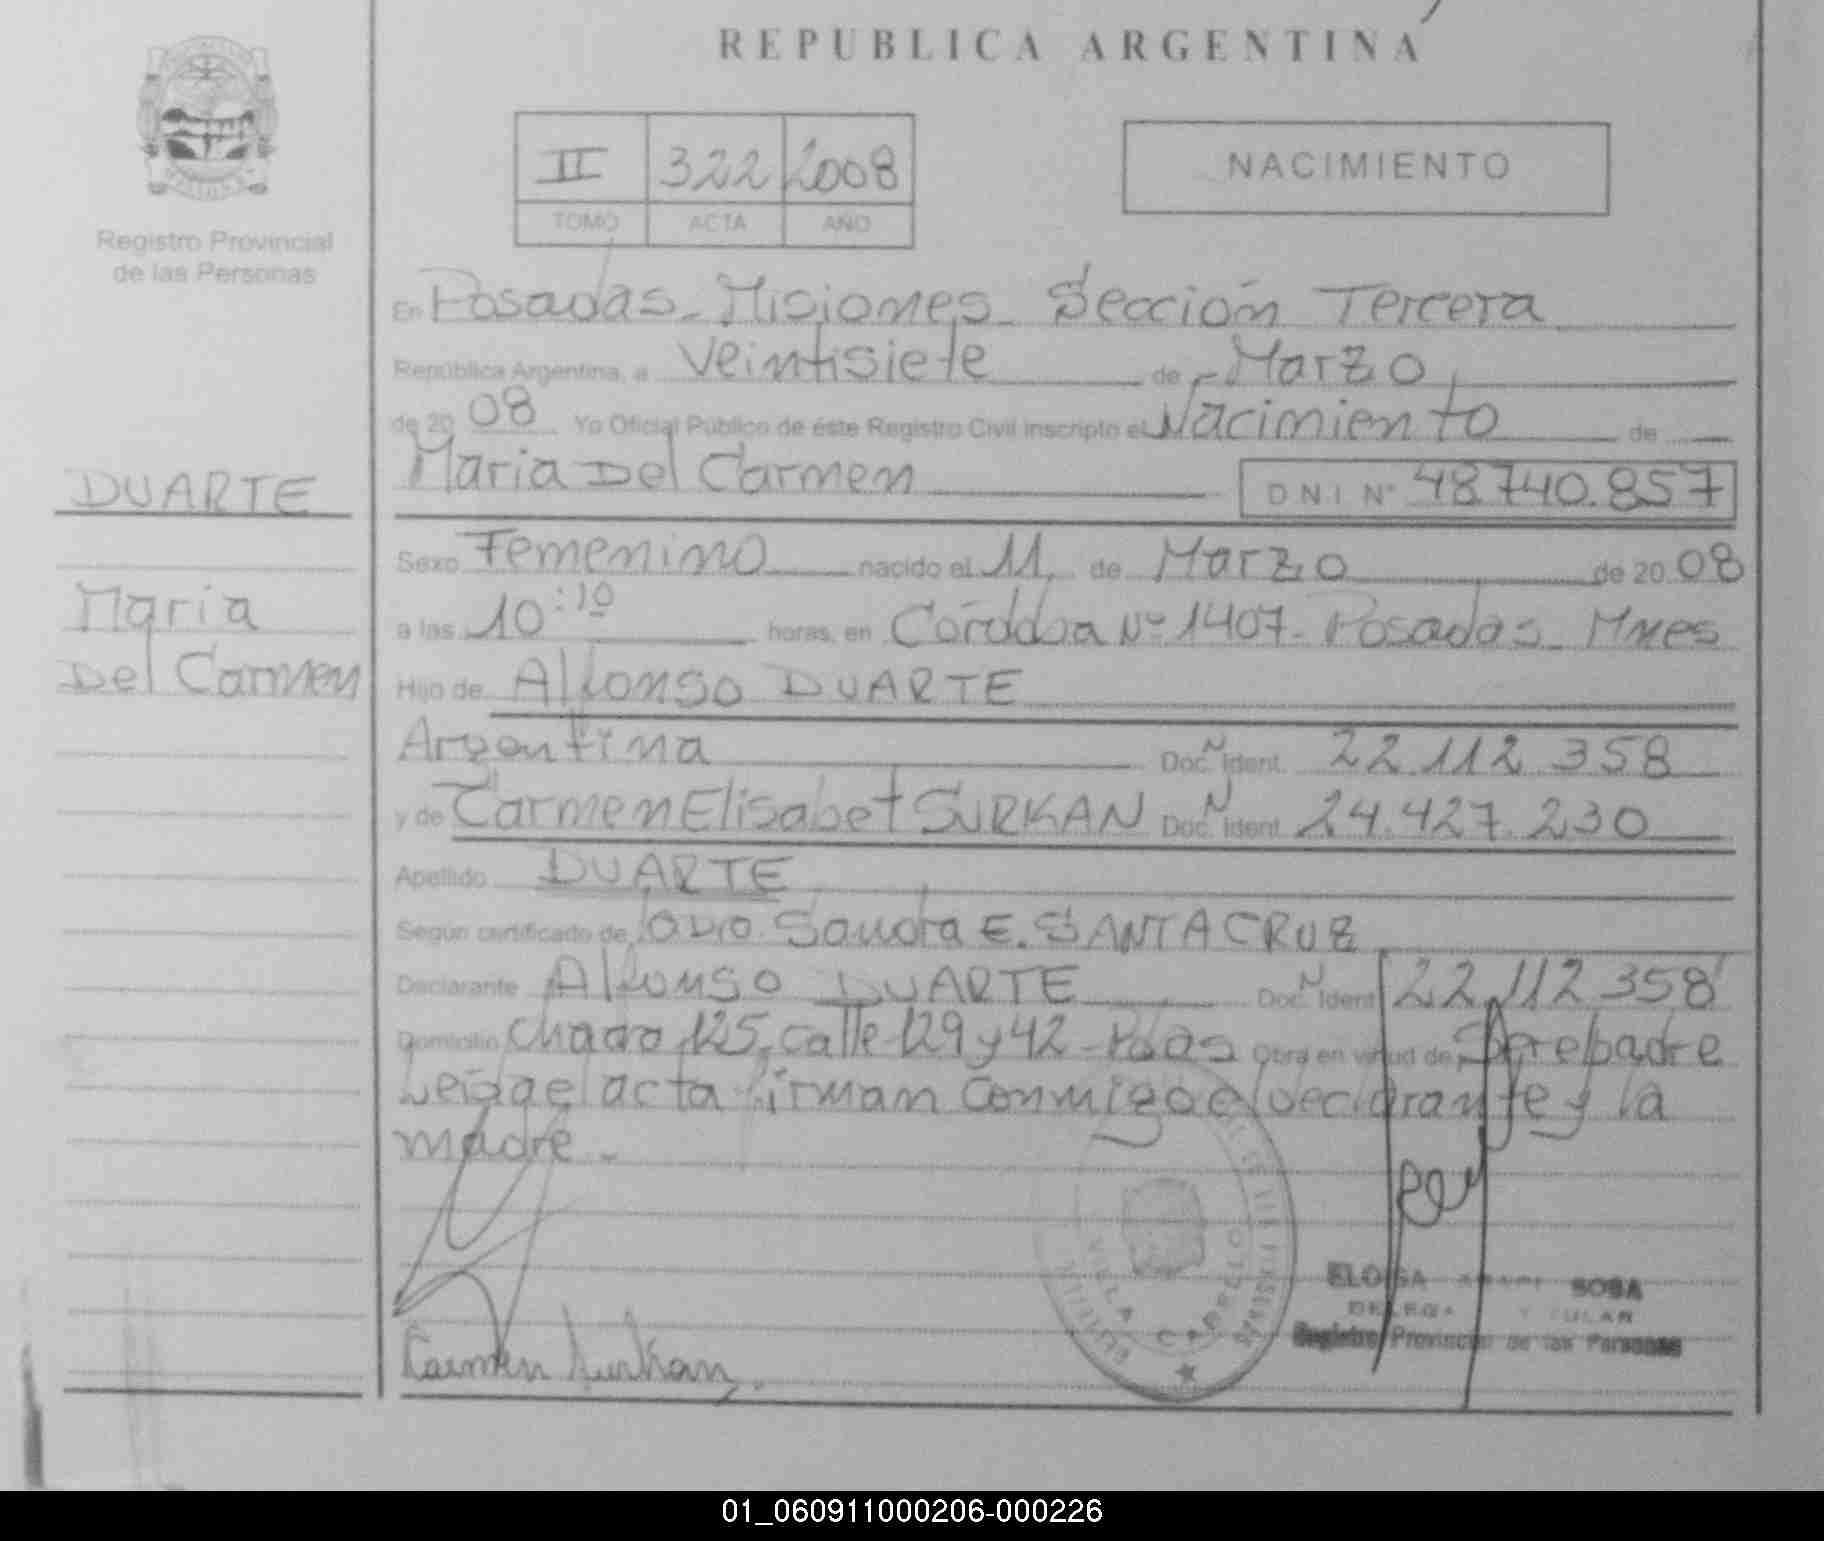 REPUBLICA ARGENTINA
II 322 2008
TOMO ACTA AÑO
NACIMIENTO
Registro Provincial
de las Personas
DUARTE
Maria
Del Carmen
En Posadas - Misiones - Sección Tercera
República Argentina, a Veintisiete de Marzo
de 20 08 Yo Oficial Público de éste Registro Civil inscripto el Nacimiento de
Maria Del Carmen D N I Nº 48.740.857
Sexo Femenino nacido el 11 de Marzo de 20 08
a las 10:10 horas, en Córdoba Nº 1407 - Posadas - Mnes
Hijo de Alfonso DUARTE
Argentina Doc. N Ident. 22.112.358
y de Carmen Elisabet SURKAN Doc. N Ident. 24.427.230
Apellido DUARTE
Según certificado de Sandra E. SANTACRUZ
Declarante Alfonso DUARTE Doc. N Ident. 22.112.358
Domicilio Chacra 125, Calle 129 y 42 - Pdas Obra en virtud de Ser el padre
Leida el acta firman conmigo el declarante y la
madre.-
Carmen Surkan.
VILLA CABELLO
ELOISA SOSA
Registro Provincial de las Personas
01_060911000206-000226